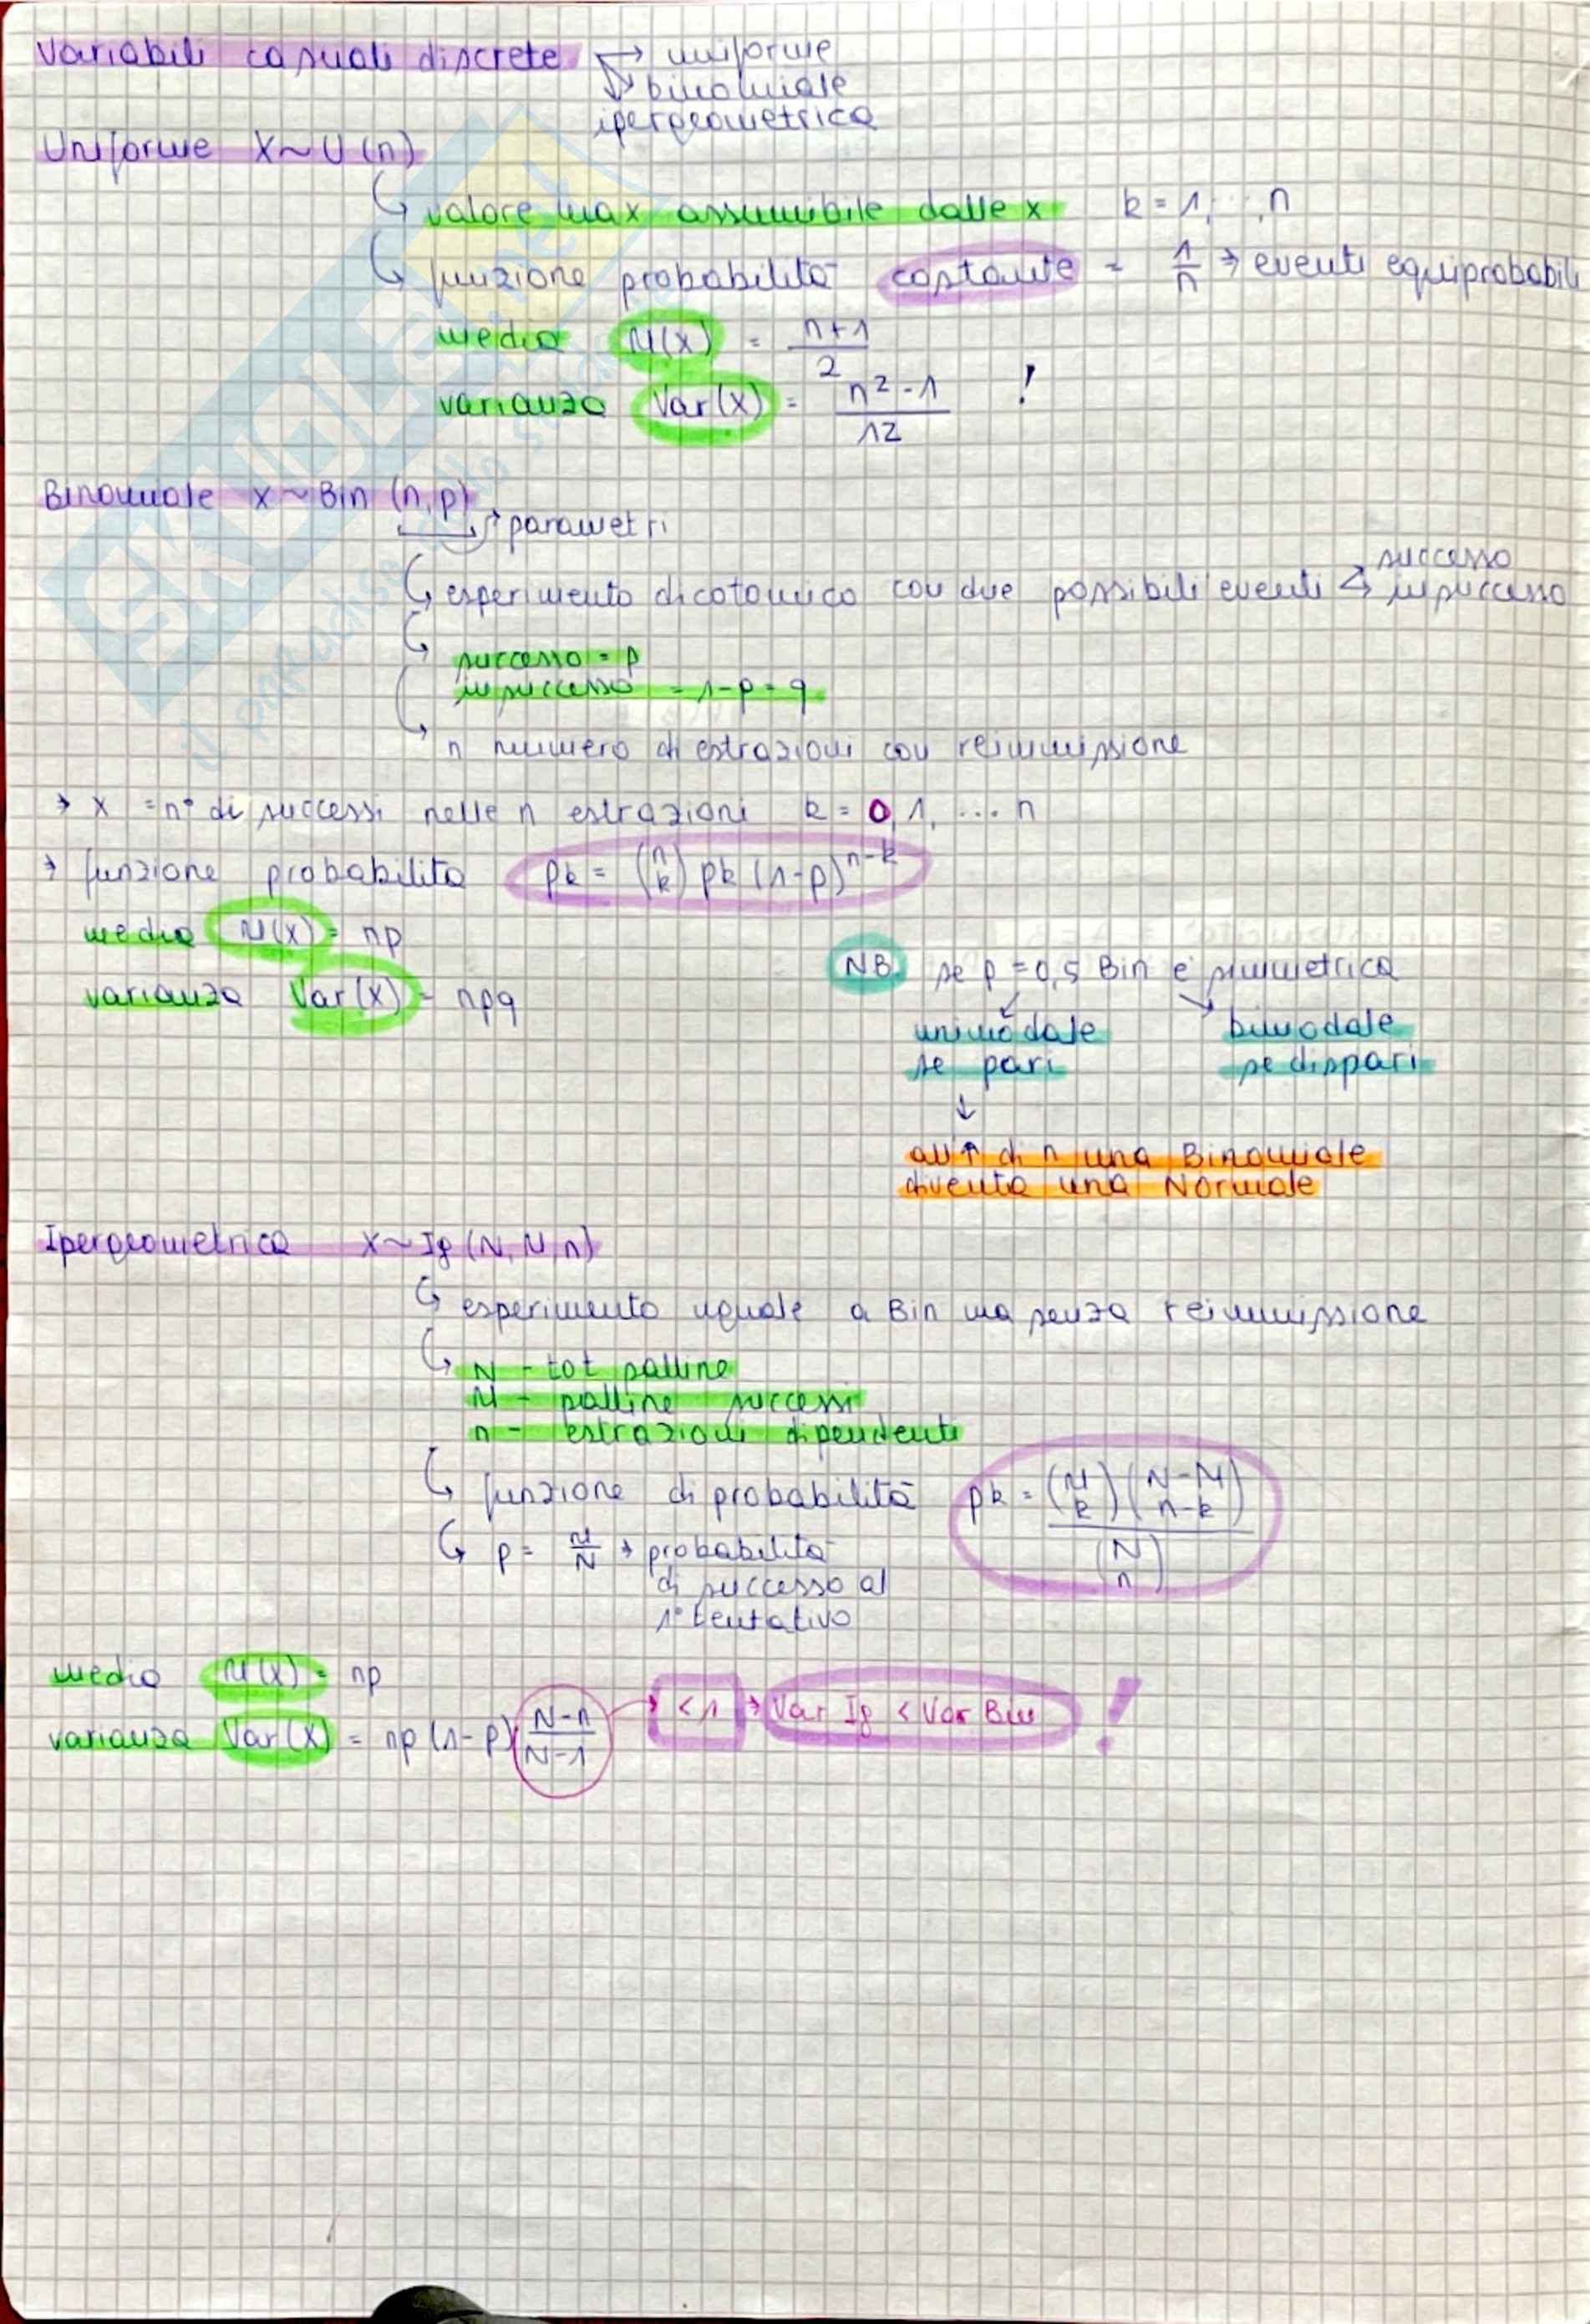 Variabili casuali discrete → uniforme
↘ binomiale
ipergeometrica
Uniforme X~U(n)
↳ valore max assumibile dalle x k = 1, ..., n
↳ funzione probabilità costante = 1/n → eventi equiprobabili
media M(x) = (n+1)/2
varianza Var(X) = (n²-1)/12 !
Binomiale X~Bin (n,p)
→ parametri
↳ esperimento dicotomico con due possibili eventi → successo
→ insuccesso
↳ successo = p
insuccesso = 1-p = q
↳ n numero di estrazioni con reimmissione
→ X = n° di successi nelle n estrazioni k = 0, 1, ... n
→ funzione probabilità pk = (n k) pk (1-p)^n-k
media M(x) = np
varianza Var(X) = npq
NB. se p = 0,5 Bin è simmetrica
unimodale bimodale
se pari se dispari
↓
all'↑ di n una Binomiale
diventa una Normale
Ipergeometrica X~Ig (N, M, n)
↳ esperimento uguale a Bin ma senza reimmissione
↳ N - tot palline
M - palline successi
n - estrazioni dipendenti
↳ funzione di probabilità pk = (M k)(N-M n-k) / (N n)
↳ p = M/N → probabilità
di successo al
1° tentativo
media M(x) = np
varianza Var(X) = np (1-p) (N-n)/(N-1) → <1 → Var Ig < Var Bin !
SKUOLA.net